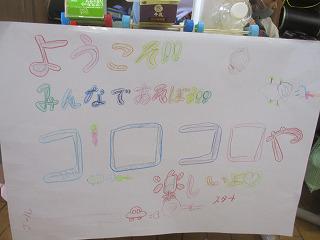 ようこそ!!
みんなであそぼう!!
コロコロや
楽しいよ
スタート
ゴール